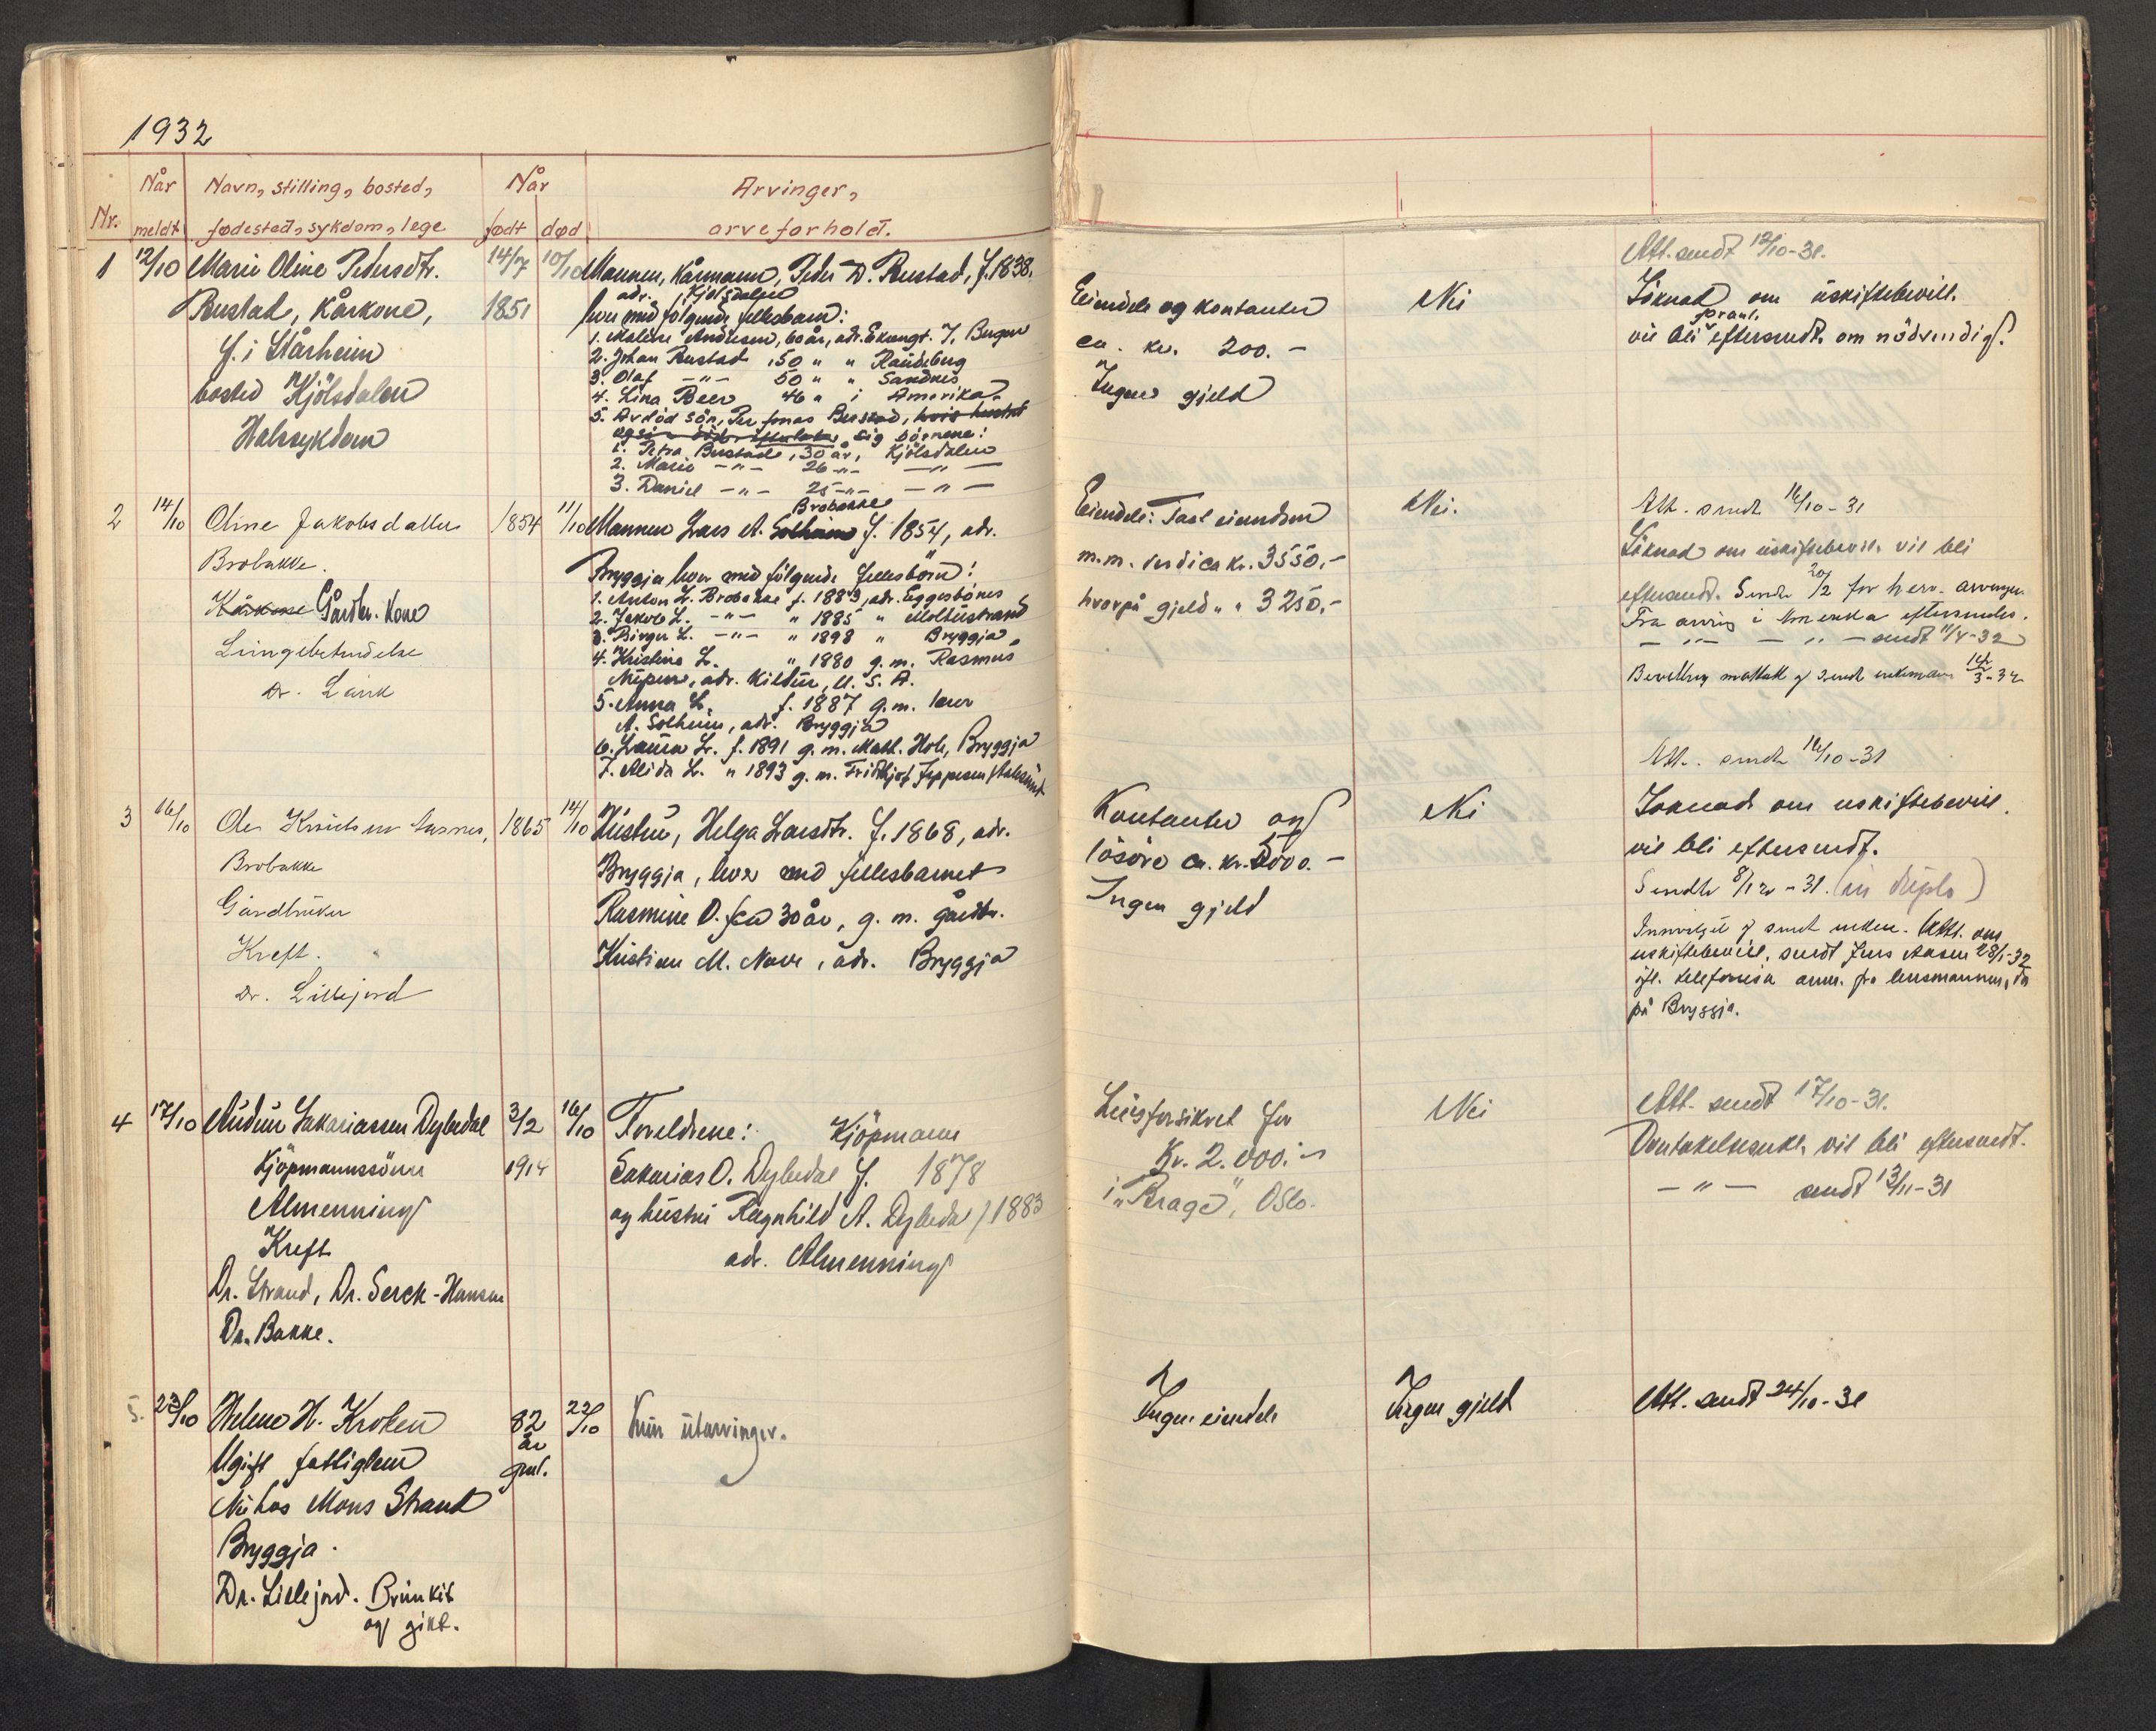 1932
Nr. Når meldt Navn, stilling, bosted, fødested, sykdom, lege Når født død Arvinger, arveforhold.
1 12/10 Marie Oline Pedersdtr. 14/7 10/10 Mannen, kårmann, Peder D. Rustad, f. 1838.
Rustad, Kårkone, 1851
adr. Kjölsdalen
f. i Stårheim
lever med följende fellesbarn:
bosted Kjölsdalen
1. Malene Andresen, 60 år, adr. Ekrengt. 7, Bergen
Halssykdom
2. Johan Rustad 50 " " Raudeberg
3. Olaf -"- 50 " " Sandnes
4. Lina Beer 46 " i Amerika
5. Avdöd sön, Per Jonas Rustad, hvis hustru
også död sig börnene:
1. Petra Rustad, 30 år, Kjölsdalen
2. Marie -"- 26 -"- -"-
3. Daniel -"- 25 -"- -"-
Eiendele og kontanter
ca. kr. 200.-
Ingen gjeld
Nei
Att. sendt 12/10-31.
Söknad om uskiftebevill.
vil bli eftersendt om nödvendig.
2 14/10 Oline Jakobsdatter 1854 11/10 Mannen Lars A. Solheim Brobakke f. 1854, adr.
Brobakke.
Kårkone Gårdbr. Kone
Lungebetendelse
Dr. Lark
Bryggja lever med fölgende fellesbörn:
1. Anton L. Brobakke f. 1883, adr. Eggesbönes
2. Jakob L. -"- " 1885 " Moltustrand
3. Birger L. -"- " 1898 " Bryggja
4. Kristine L. " 1880 g.m. Rasmus
adr. U. S. A.
5. Anna L. f. 1887 g.m. Iver
A. Solheim, adr. Bryggja
6. Laura L. f. 1891 g.m. Matt. Hole, Bryggja
7. Alida L. " 1893 g.m. Fridthjof Jeppesen, Aalesund
Eiendele: Fast eiendom
m.m. verdi ca kr. 3550,-
hvorpå gjeld " " 3250,-
Nei.
Att. sendt 16/10-31
Söknad om uskiftebevil. vil bli
eftersendt. Sendt 20/2 for herv. arvinger
Fra arving i Amerika eftersendes.
-"- -"- sendt 11/4-32
Bevilling mottatt og sendt
3 16/10 Ole Aasnes, 1865 14/10 Hustru, Helga Larsdtr. f. 1868, adr.
Brobakke
Gårdbruker
Kreft.
Dr. Lillejord
Bryggja, lever med fellesbarnet
Rasmine O. f ca 30 år, g. m. gårdbr.
Kristian M. Nave, adr. Bryggja
Kontanter og
lösöre ca. kr. 2000.-
Ingen gjeld
Nei
Att. sendt 16/10-31
Söknad om uskiftebevill.
vil bli eftersendt.
Sendt 8/12-31. (in duplo)
Innvilget og sendt enken. Att. om
uskiftebevill. sendt Jens Aasen 28/1-32
efl. telefonisk anm. fra lensmannen, da
på Bryggja.
4 17/10 Audun Sakariassen Dybedal 3/2 16/10 Foreldrene: Kjöpmann
Kjöpmannssönn 1914 Sakarias O. Dybedal f. 1878
Almenning og hustru Ragnhild A. Dybedal f 1883
Kreft adr. Almenning
Dr. Strand, Dr. Serck-Hansen
Dr. Bakke.
Livsforsikret for
Kr. 2.000.-
i "Brage", Oslo.
Nei
Att. sendt 17/10-31.
Overtakelseserkl. vil bli eftersendt.
-"- sendt 13/11-31
5. 23/10 Helene H. Kroken 82 år gml. 22/10 Kun utarvinger.
Ugift fattiglem
Nu hos Mons Strand
Bryggja.
Dr. Lillejord. Brunkit
og gikt.
Ingen eiendele
Ingen gjeld
Att. sendt 24/10-31